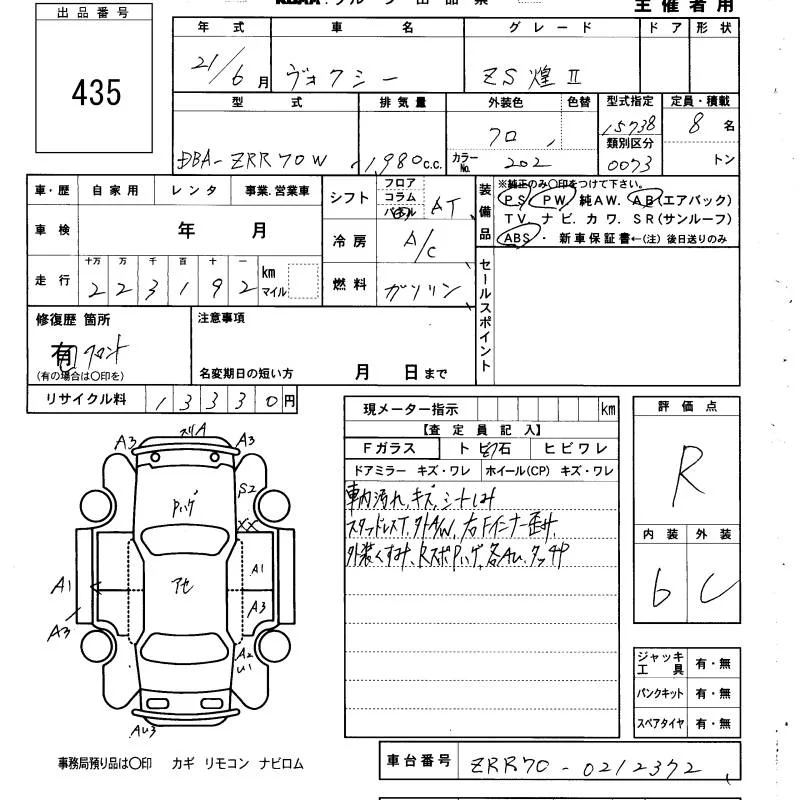 出品番号
435
主催者用
年式 車名 グレード ドア 形状
21/6月 ヴォクシー ZS煌Ⅱ
型式 排気量 外装色 色替 型式指定 定員・積載
DBA-ZRR70W 1,980c.c. クロ 15738 8名
カラーNo. 202 類別区分 0073 トン
車・歴 自家用 レンタ 事業.営業車
車検 年 月
走行 十万 万 千 百 十 一 km マイル
223192
シフト フロア コラム パネル AT
冷房 A/C
燃料 ガソリン
装備品
※純正のみ〇印をつけて下さい。
PS PW 純AW. AB(エアバック)
TV. ナビ. カワ. SR(サンルーフ)
ABS・ 新車保証書←(注)後日送りのみ
セールスポイント
修復歴 箇所
有 フロント
(有の場合は〇印を)
注意事項
名変期日の短い方 月 日まで
リサイクル料 13330円
現メーター指示 km
【査定員記入】
Fガラス トビ石 ヒビワレ
ドアミラー キズ・ワレ ホイール(CP) キズ・ワレ
車内汚れ、キズ、シートしみ
スタッドレスT、外AW、右Fインナー歪み、
外装くすみ、RスポPハゲ、各AU、タッチP
評価点
R
内装 外装
b C
A3 スリA A3
Pハゲ
S2
XX
A1
A1
アセ
A3
A3
A2
U1
AU3
ジャッキ工具 有・無
パンクキット 有・無
スペアタイヤ 有・無
事務局預り品は〇印 カギ リモコン ナビロム
車台番号 ZRR70-0212372